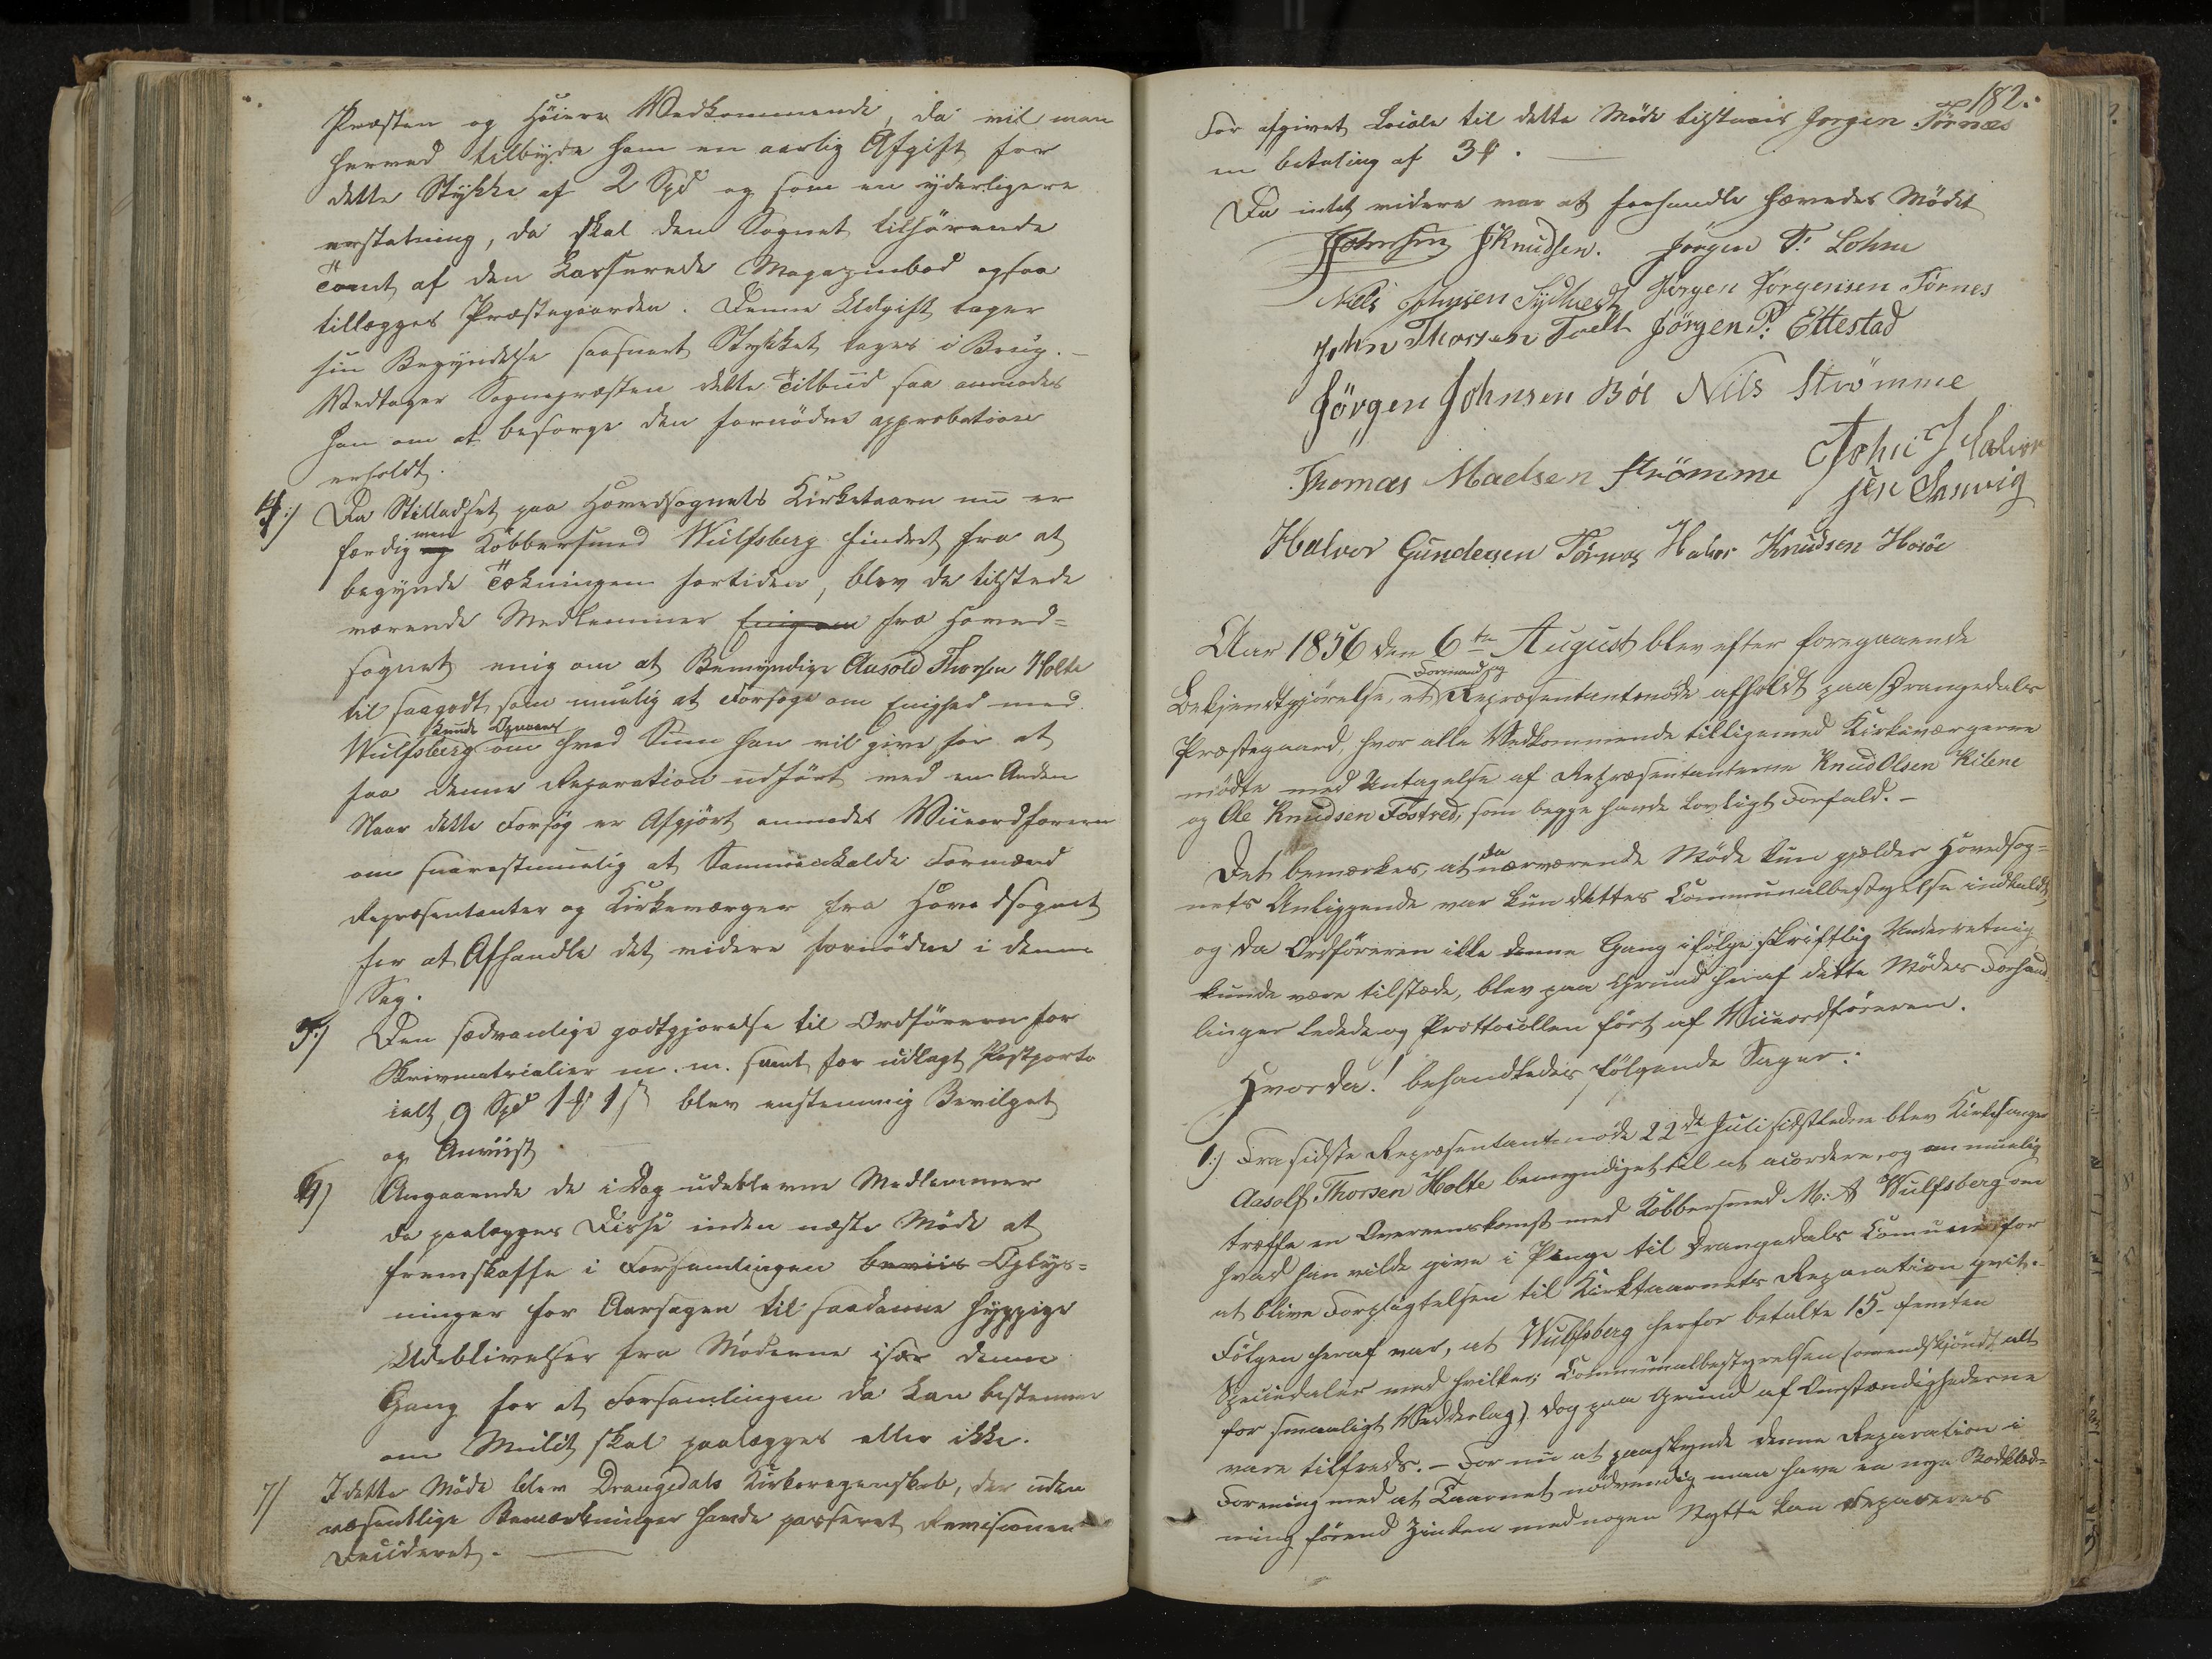 Præsten og Høiere Vedkommende, da vil man
herved tilbyde ham en aarlig Afgift for
dette Stykke af 2 Spd og som en yderligere
erstatning, da skal den Sognet tilhørende
Tomt af den Casserede Magazinbod ogsaa
tillægges Præstegaarden. Denne Udgift tager
sin Begyndelse saasnart Stykket tages i Brug. –
Vedtager Sognepræsten dette Tilbud saa anmodes
han om at besørge den fornødne approbation
erholdt.
4:) Da Stilladset paa Hovedsognets Kirketaarn nu er
færdig men Kobbersmed Wulfsberg hindret fra at
begynde Tækningen fortiden, blev de tilstede
værende Medlemmer Enig om fra Hoved=
sognet enig om at Bemyndige Aasold Thorsen Holte
til saagodt som muelig at Forsøge om Enighed med
Wulfsberg om hvad Sum han vil give for at
faa denne Reparation udført med en Anden
Naar dette Forsøg er Afgjort anmodes Viceordføreren
om snarestmuelig at Sammenkalde Formænd
Repræsentanter og Kirkeværger fra Hovedsognet
for at Afhandle det videre fornødne i denne
Sag.
5:) Den sædvanlige godtgjørelse til Ordføreren for
Skrivmatrialier m. m. samt for udlagt Postporto
ialt 9 Spd 1 ₰ 1 ß blev enstemmig Bevilget
og Anviist
6) Angaaende de i Dag udeblevne Medlemmer
da paalægges Disse inden næste Møde at
fremskaffe i Forsamlingen beviis Oplys=
ninger for Aarsagen til saadanne hyppige
Udeblivelser fra Møderne især denne
Gang for at Forsamlingen da kan bestemme
om Mulct skal paalægges eller ikke.
7/ I dette Møde blev Drangedals Kirkeregenskab, der uden
væsentlige Bemærkninger havde passeret Revisionen
Decideret. –
182.
For afgivet Locale til dette Møde tilstaaes Jørgen Tørnes
en betaling af 3 ₰. –
Da intet videre var at forhandle hævedes Mødet
JKnudsen. Jørgen T: Lohne
Nils Johnsen Jørgen Jørgensen Tørnes
John Thorsen Tveit Jørgen P: Ettestad
Jörgen Johnsen Böe Nils Strömme
Thomas Madsen Strömme John Halvor
sen Sanvig
Halvor Gundersen Törnes Halvor Knudsen
Aar 1856 den 6te August blev efter foregaaende
Formænd og
Bekjendtgjørelse, et Repræsentantmøde afholdt paa Drangedals
Præstegaard, hvor alle Vedkommende tilligemed Kirkeværgerne
mødte med Untagelse af Repræsentanterne Knud Olsen Kilene
og Ole Knudsen Fostved, som begge havde lovligt Forfald. –
Det bemærkes, at da nærværende Møde kun gjelder Hovedsog=
nets Anliggende var kun dettes Communalbestyrelse indkaldt,
og da Ordføreren ikke denne Gang ifølge skriftlig Underretnig
kunde være tilstede, blev paa Grund heraf dette Mødes Forhand
linger ledede og Prottocollen ført af Viceordføreren.
Hvorda! behandledes følgende Sager:
1:) Fra sidste Repræsentantmøde 22de Juli sidstleden blev Kirkesanger
Aasolf Thorsen Holte bemyndiget til at acordere, og om muelig
træffe en Overenskomst med Kobbersmed M: A Wulfsberg om
hvad han vilde give i Penge til Drangedals Comune for
at blive Forpligtelsen til Kirktaarnets Reparation qvit. –
Følgen heraf var, at Wulfsberg herfor betalte 15- femten
Speciedaler med hvilket; Communalbestyrelsen (omendskjøndt alt
for smaaligt Vedderlag) dog paa Grund af Omstændighederne
vare tilfreds. – For nu at paaskynde denne Reparation i
Forening med at Taarnet nødvendig maa have en nye Bordklæd=
ning, førend Zinken med nogen Nytte kan Repareres